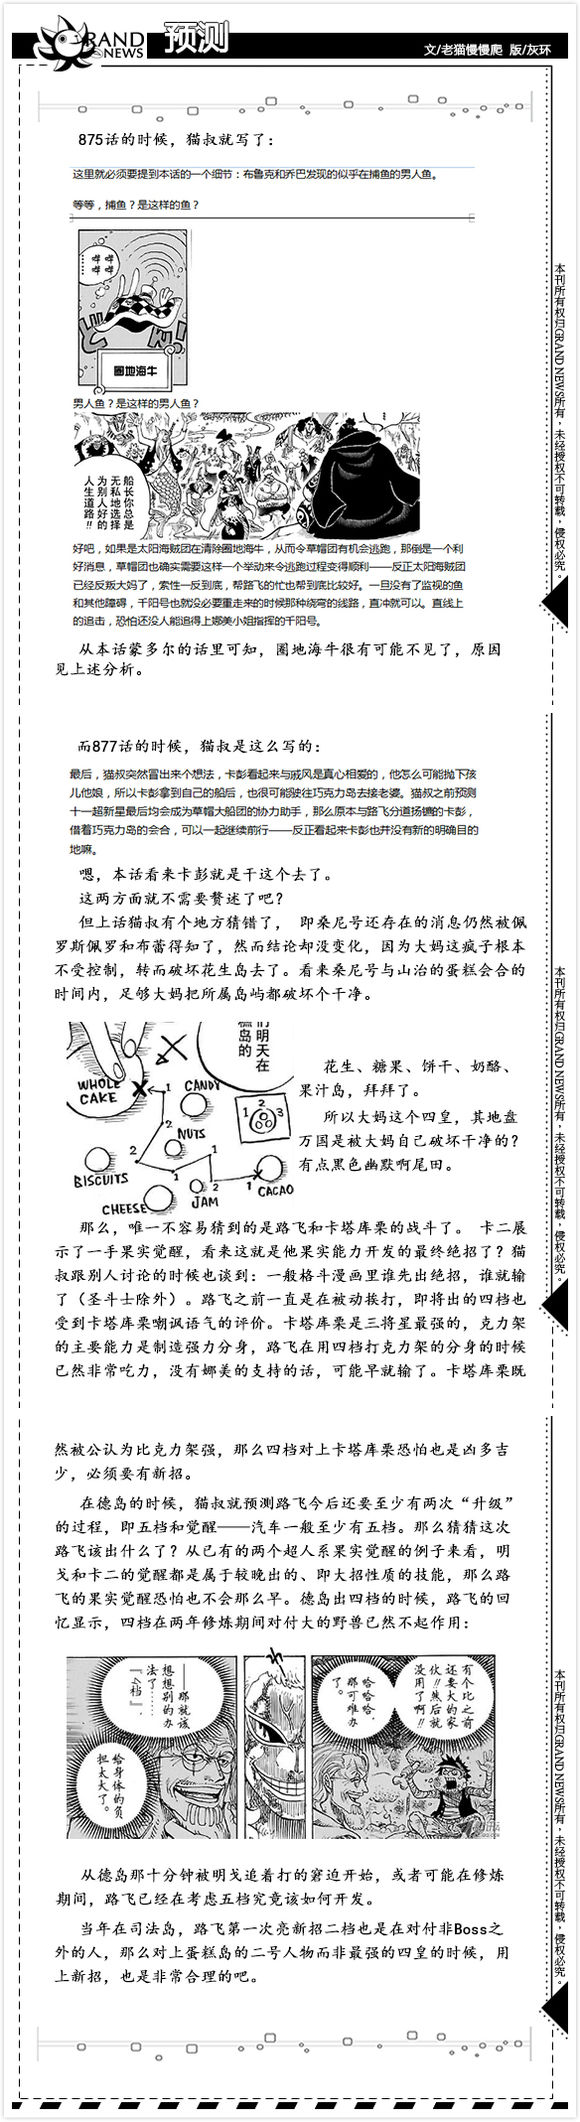 GRAND NEWS
预测
文/老猫慢慢爬 版/灰环
875话的时候，猫叔就写了：
这里就必须要提到本话的一个细节：布鲁克和乔巴发现的似乎在捕鱼的男人鱼。
等等，捕鱼？是这样的鱼？
哞哞
哞哞
……
圈地海牛
男人鱼？是这样的男人鱼？
船长你总是
无私地选择
为别人好的
人生道路!!
好吧，如果是太阳海贼团在清除圈地海牛，从而令草帽团有机会逃跑，那倒是一个利
好消息，草帽团也确实需要这样一个举动来令逃跑过程变得顺利——反正太阳海贼团
已经反叛大妈了，索性一反到底，帮路飞的忙也帮到底比较好。一旦没有了监视的鱼
和其他障碍，千阳号也就没必要重走来的时候那种绕弯的线路，直冲就可以。直线上
的追击，恐怕还没人能追得上娜美小姐指挥的千阳号。
从本话蒙多尔的话里可知，圈地海牛很有可能不见了，原因
见上述分析。
而877话的时候，猫叔是这么写的：
最后，猫叔突然冒出来个想法，卡彭看起来与戚风是真心相爱的，他怎么可能抛下孩
儿他娘，所以卡彭拿到自己的船后，也很可能驶往巧克力岛去接老婆。猫叔之前预测
十一超新星最后均会成为草帽大船团的协力助手，那么原本与路飞分道扬镳的卡彭，
借着巧克力岛的会合，可以一起继续前行——反正看起来卡彭也并没有新的明确目的
地嘛。
嗯，本话看来卡彭就是干这个去了。
这两方面就不需要赘述了吧？
但上话猫叔有个地方猜错了， 即桑尼号还存在的消息仍然被佩
罗斯佩罗和布蕾得知了，然而结论却没变化，因为大妈这疯子根本
不受控制，转而破坏花生岛去了。看来桑尼号与山治的蛋糕会合的
时间内，足够大妈把所属岛屿都破坏个干净。
们明天在
岛的
WHOLE
CAKE
CANDY
NUTS
BISCUITS
CHEESE
JAM
CACAO
花生、糖果、饼干、奶酪、
果汁岛，拜拜了。
所以大妈这个四皇，其地盘
万国是被大妈自己破坏干净的？
有点黑色幽默啊尾田。
那么，唯一不容易猜到的是路飞和卡塔库栗的战斗了。 卡二展
示了一手果实觉醒，看来这就是他果实能力开发的最终绝招了？猫
叔跟别人讨论的时候也谈到：一般格斗漫画里谁先出绝招，谁就输
了（圣斗士除外）。路飞之前一直是在被动挨打，即将出的四档也
受到卡塔库栗嘲讽语气的评价。卡塔库栗是三将星最强的，克力架
的主要能力是制造强力分身，路飞在用四档打克力架的分身的时候
已然非常吃力，没有娜美的支持的话，可能早就输了。卡塔库栗既
然被公认为比克力架强，那么四档对上卡塔库栗恐怕也是凶多吉
少，必须要有新招。
在德岛的时候，猫叔就预测路飞今后还要至少有两次“升级”
的过程，即五档和觉醒——汽车一般至少有五档。那么猜猜这次
路飞该出什么了？从已有的两个超人系果实觉醒的例子来看，明
戈和卡二的觉醒都是属于较晚出的、即大招性质的技能，那么路
飞的果实觉醒恐怕也不会那么早。德岛出四档的时候，路飞的回
忆显示，四档在两年修炼期间对付大的野兽已然不起作用：
有个比之前
还要大的家
伙!!然后就
没用了啊!!
哈哈哈，
那可难办
了。
——那就该
想想别的办
法了……
给身体的负
担太大了。
从德岛那十分钟被明戈追着打的窘迫开始，或者可能在修炼
期间，路飞已经在考虑五档究竟该如何开发。
当年在司法岛，路飞第一次亮新招二档也是在对付非Boss之
外的人，那么对上蛋糕岛的二号人物而非最强的四皇的时候，用
上新招，也是非常合理的吧。
本刊所有权归GRAND NEWS所有，未经授权不可转载，侵权必究。
本刊所有权归GRAND NEWS所有，未经授权不可转载，侵权必究。
本刊所有权归GRAND NEWS所有，未经授权不可转载，侵权必究。